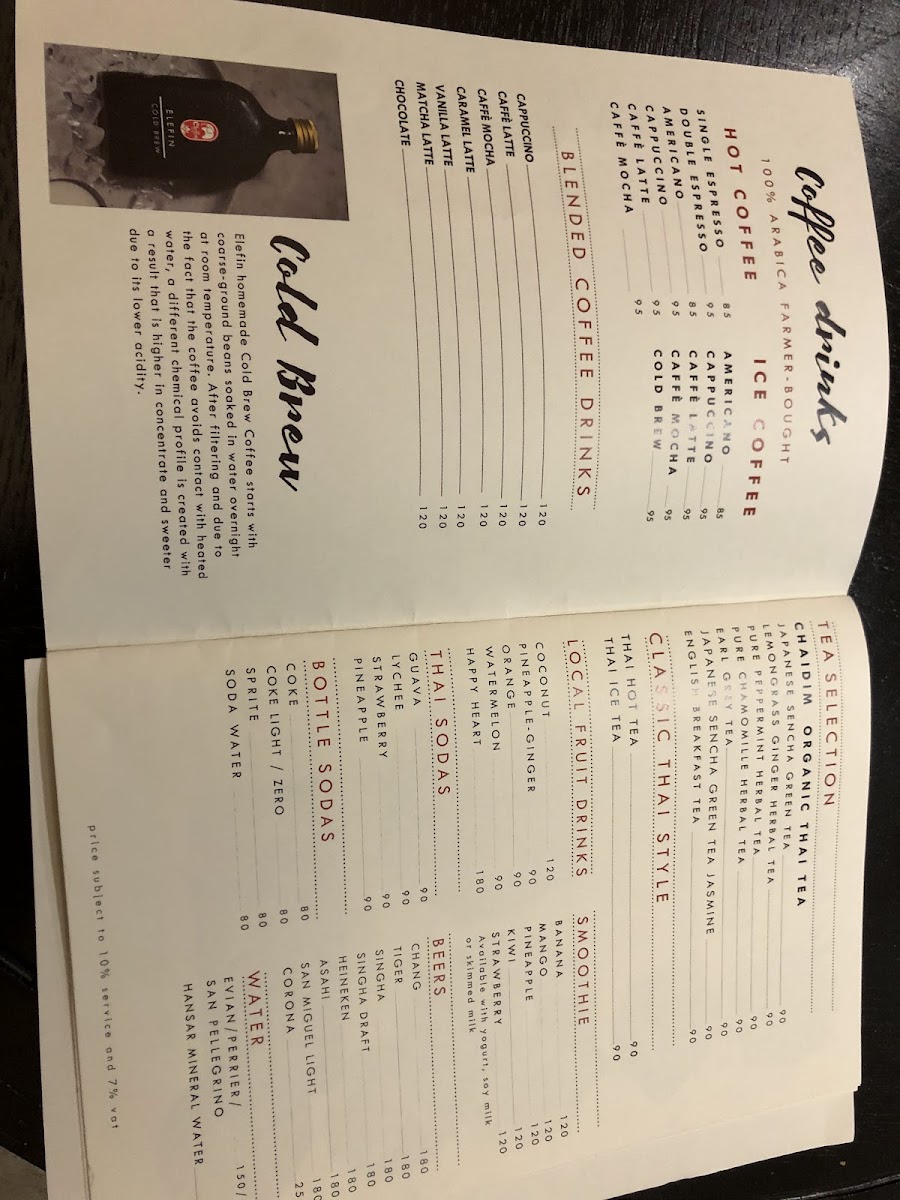 Coffee drinks
100% ARABICA FARMER-BOUGHT
HOT COFFEE
SINGLE ESPRESSO 85
DOUBLE ESPRESSO 95
AMERICANO 85
CAPPUCCINO 95
CAFFÈ LATTE 95
CAFFÈ MOCHA 95
ICE COFFEE
AMERICANO 85
CAPPUCCINO 95
CAFFÈ LATTE 95
CAFFÈ MOCHA 95
COLD BREW 95
BLENDED COFFEE DRINKS
CAPPUCCINO 120
CAFFÈ LATTE 120
CAFFÈ MOCHA 120
CARAMEL LATTE 120
VANILLA LATTE 120
MATCHA LATTE 120
CHOCOLATE 120
ELEFIN
COLD BREW
Cold Brew
Elefin homemade Cold Brew Coffee starts with
coarse-ground beans soaked in water overnight
at room temperature. After filtering and due to
the fact that the coffee avoids contact with heated
water, a different chemical profile is created with
a result that is higher in concentrate and sweeter
due to its lower acidity.
TEA SELECTION
CHAIDIM ORGANIC THAI TEA
JAPANESE SENCHA GREEN TEA 90
LEMONGRASS GINGER HERBAL TEA 90
PURE PEPPERMINT HERBAL TEA 90
PURE CHAMOMILLE HERBAL TEA 90
EARL GREY TEA 90
JAPANESE SENCHA GREEN TEA JASMINE 90
ENGLISH BREAKFAST TEA 90
CLASSIC THAI STYLE
THAI HOT TEA 90
THAI ICE TEA 90
LOCAL FRUIT DRINKS
COCONUT 120
PINEAPPLE-GINGER 90
ORANGE 90
WATERMELON 90
HAPPY HEART 180
THAI SODAS
GUAVA 90
LYCHEE 90
STRAWBERRY 90
PINEAPPLE 90
BOTTLE SODAS
COKE 80
COKE LIGHT / ZERO 80
SPRITE 80
SODA WATER 80
SMOOTHIE
BANANA 120
MANGO 120
PINEAPPLE 120
KIWI 120
STRAWBERRY 120
Available with yogurt, soy milk
or skimmed milk
BEERS
CHANG 180
TIGER 180
SINGHA 180
SINGHA DRAFT 180
HEINEKEN 180
ASAHI 180
SAN MIGUEL LIGHT 180
CORONA 25
WATER
EVIAN/PERRIER/
SAN PELLEGRINO 150/
HANSAR MINERAL WATER
price subject to 10% service and 7% vat